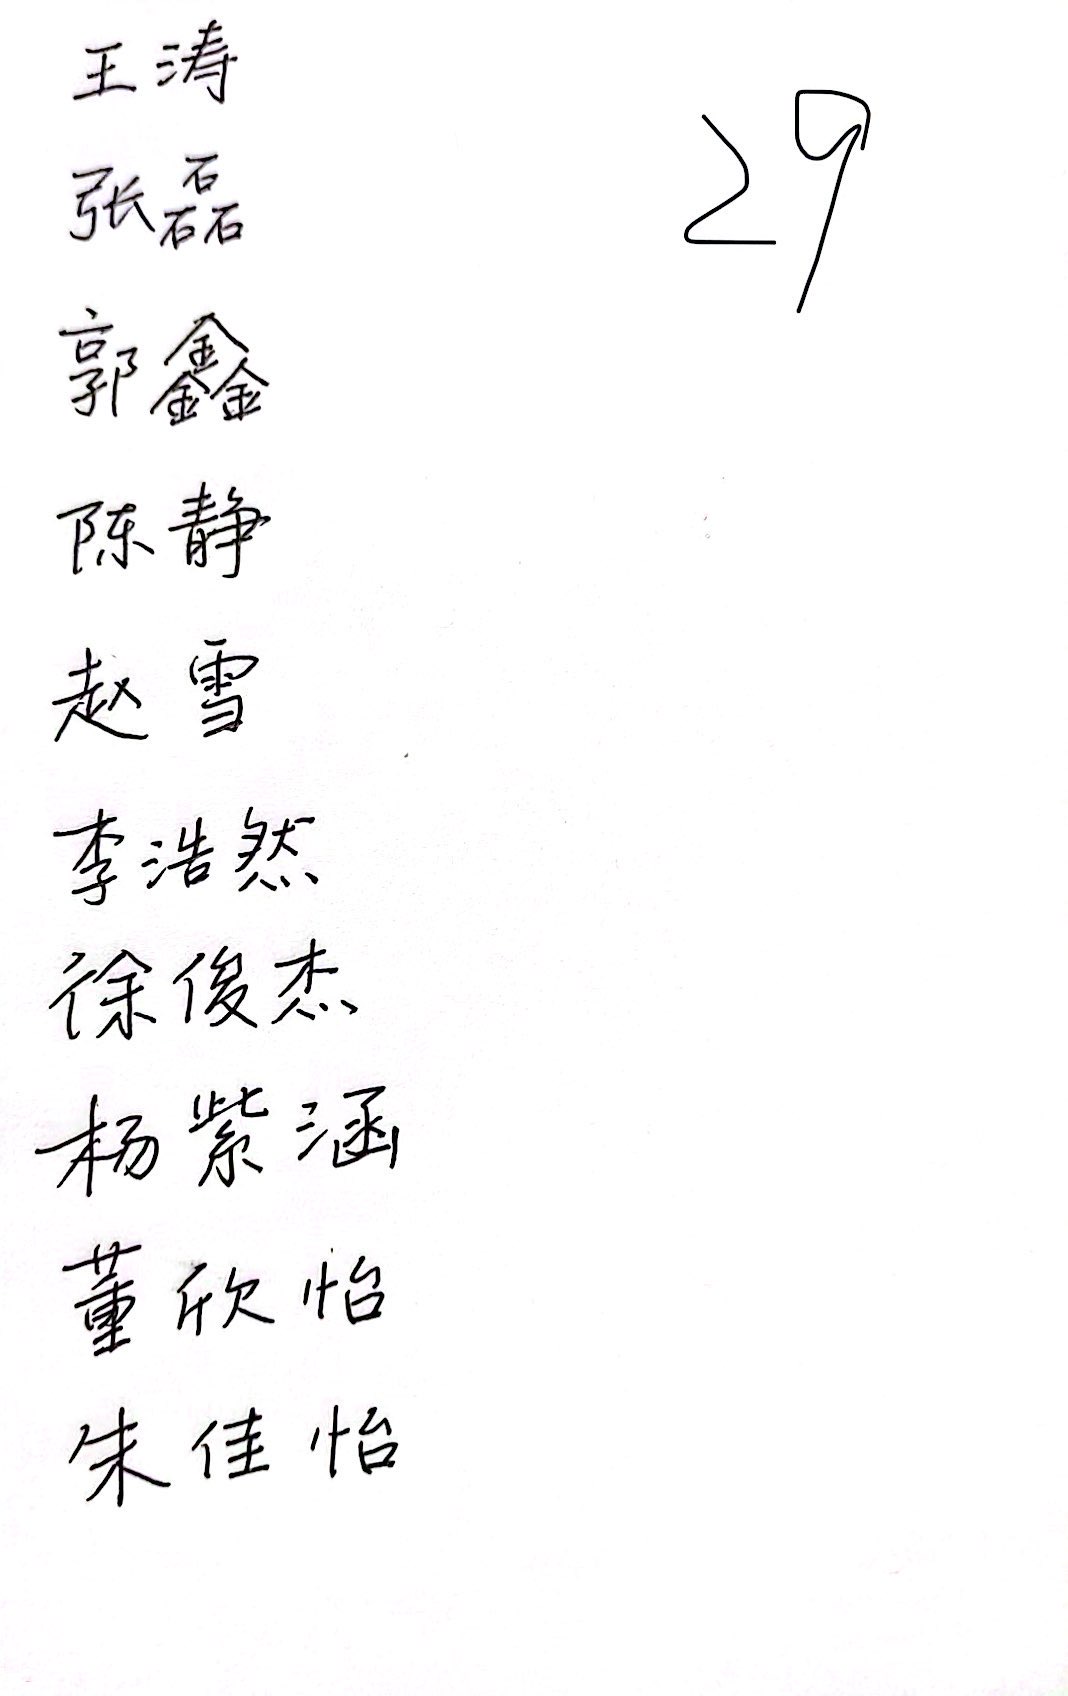 王涛
29
张磊
郭鑫
陈静
赵雪
李浩然
徐俊杰
杨紫涵
董欣怡
朱佳怡